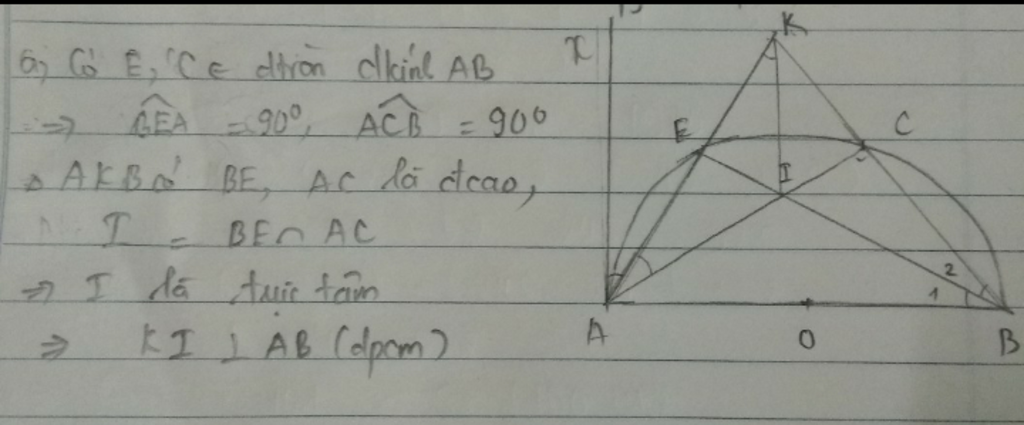 a, Có E, C ∈ đtròn đkính AB
=> BEA = 90⁰, ACB = 90⁰
Δ AKB có BE, AC là đcao,
I = BE ∩ AC
=> I là trực tâm
=> KI ⊥ AB (đpcm)
x
K
E
C
I
2
1
A
O
B